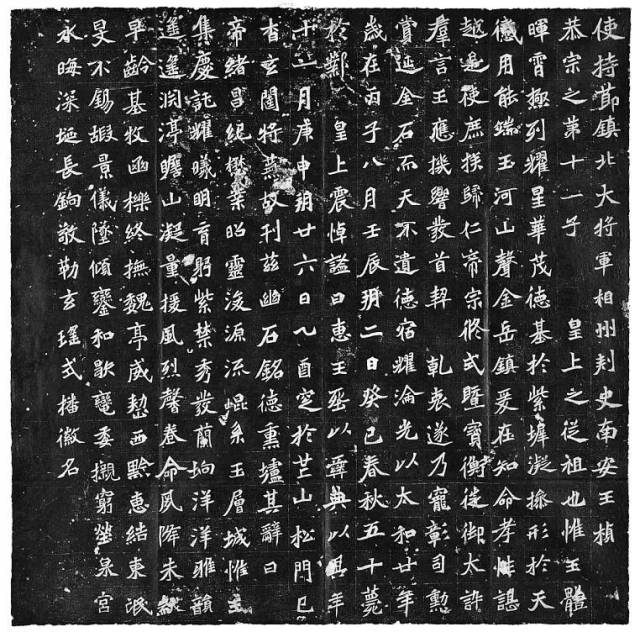 使持節鎮北大將軍相州刾史南安王楨
恭宗之第十一子　皇上之從祖也惟王體
暉霄極列耀星華茂德基於紫墀凝操形於天
儀用能端玉河山聲金岳鎮爰在知命孝性諶
越是使庶族歸仁帝宗攸式曁寶衡徙御太訏
羣言王應機響發首契　乹衷遂乃寵彰司勳
賞延金石而天不遺德宿耀淪光以太和廿年
歲在丙子八月壬辰朔二日癸巳春秋五十薨
於鄴　皇上震悼謚曰惠王塟以彝典以其年
十一月庚申朔廿六日乙酉窆於芒山松門已
杳玄闥將蕪故刋茲幽石銘德熏壚其辭曰
帝緒昌紀懋業昭靈浚源流崐系玉層城惟王
集慶託耀曦明育躬紫禁秀發蘭坰洋洋雅韻
遙遙淵渟瞻山凝量援風烈馨卷命夙降未
早齡基牧函櫟終撫魏亭威慹西黔惠結東氓
旻不錫嘏景儀墜傾鑾和歇輦委櫬窮塋泉宮
永晦深埏長鈎敬勒玄瑤式播徽名